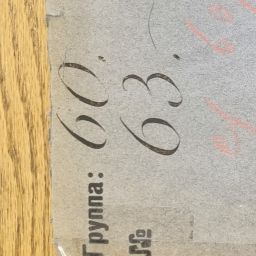 Группа: 60.
№ 63.